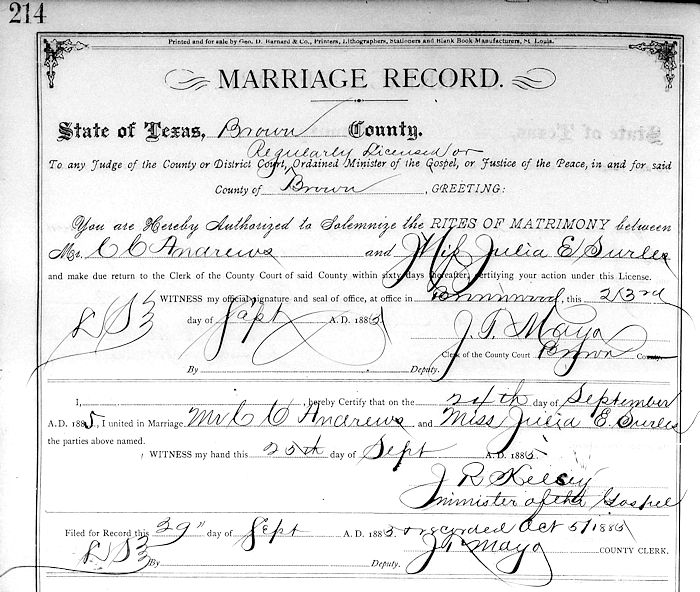 214
Printed and for sale by Geo. D. Barnard & Co., Printers, Lithographers, Stationers and Blank Book Manufacturers, St. Louis.
MARRIAGE RECORD.
State of Texas, Brown County.
Regularly Licensed or
To any Judge of the County or District Court, Ordained Minister of the Gospel, or Justice of the Peace, in and for said
County of Brown, GREETING:
You are Hereby Authorized to Solemnize the RITES OF MATRIMONY between
Mr. C C Andrews and Miss Julia E Surles
and make due return to the Clerk of the County Court of said County within sixty days thereafter, certifying your action under this License.
WITNESS my official signature and seal of office, at office in Brownwood, this 23rd
day of Sept A. D. 1885
J. T. Mayo
Clerk of the County Court Brown County.
By Deputy.
I, hereby Certify that on the 24th day of September
A. D. 1885, I united in Marriage Mr C C Andrews and Miss Julia E. Surles
the parties above named.
WITNESS my hand this 25th day of Sept A. D. 1885
J R Kelsey
minister of the Gospel
Filed for Record this 29" day of Sept A. D. 1885 & recorded Oct 5/1885
J T Mayo COUNTY CLERK.
By Deputy.